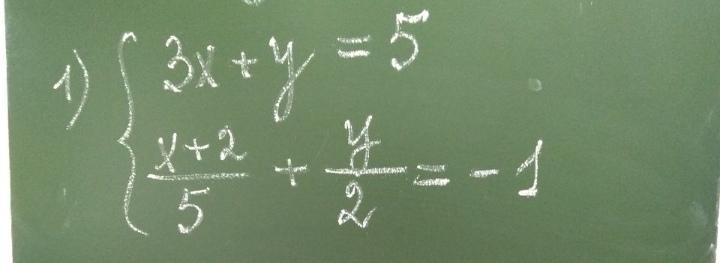 1) { 3x + y = 5
(x+2)/5 + y/2 = -1